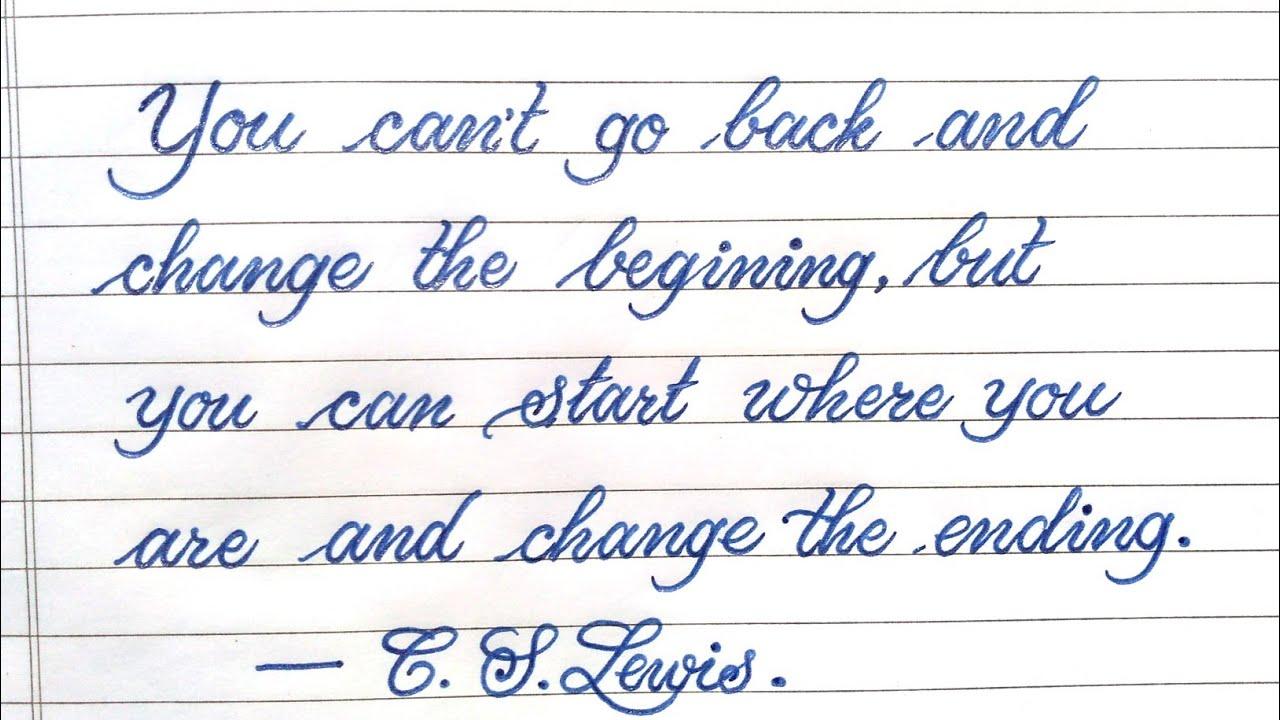 You can't go back and
change the begining, but
you can start where you
are and change the ending.
— C. S. Lewis.